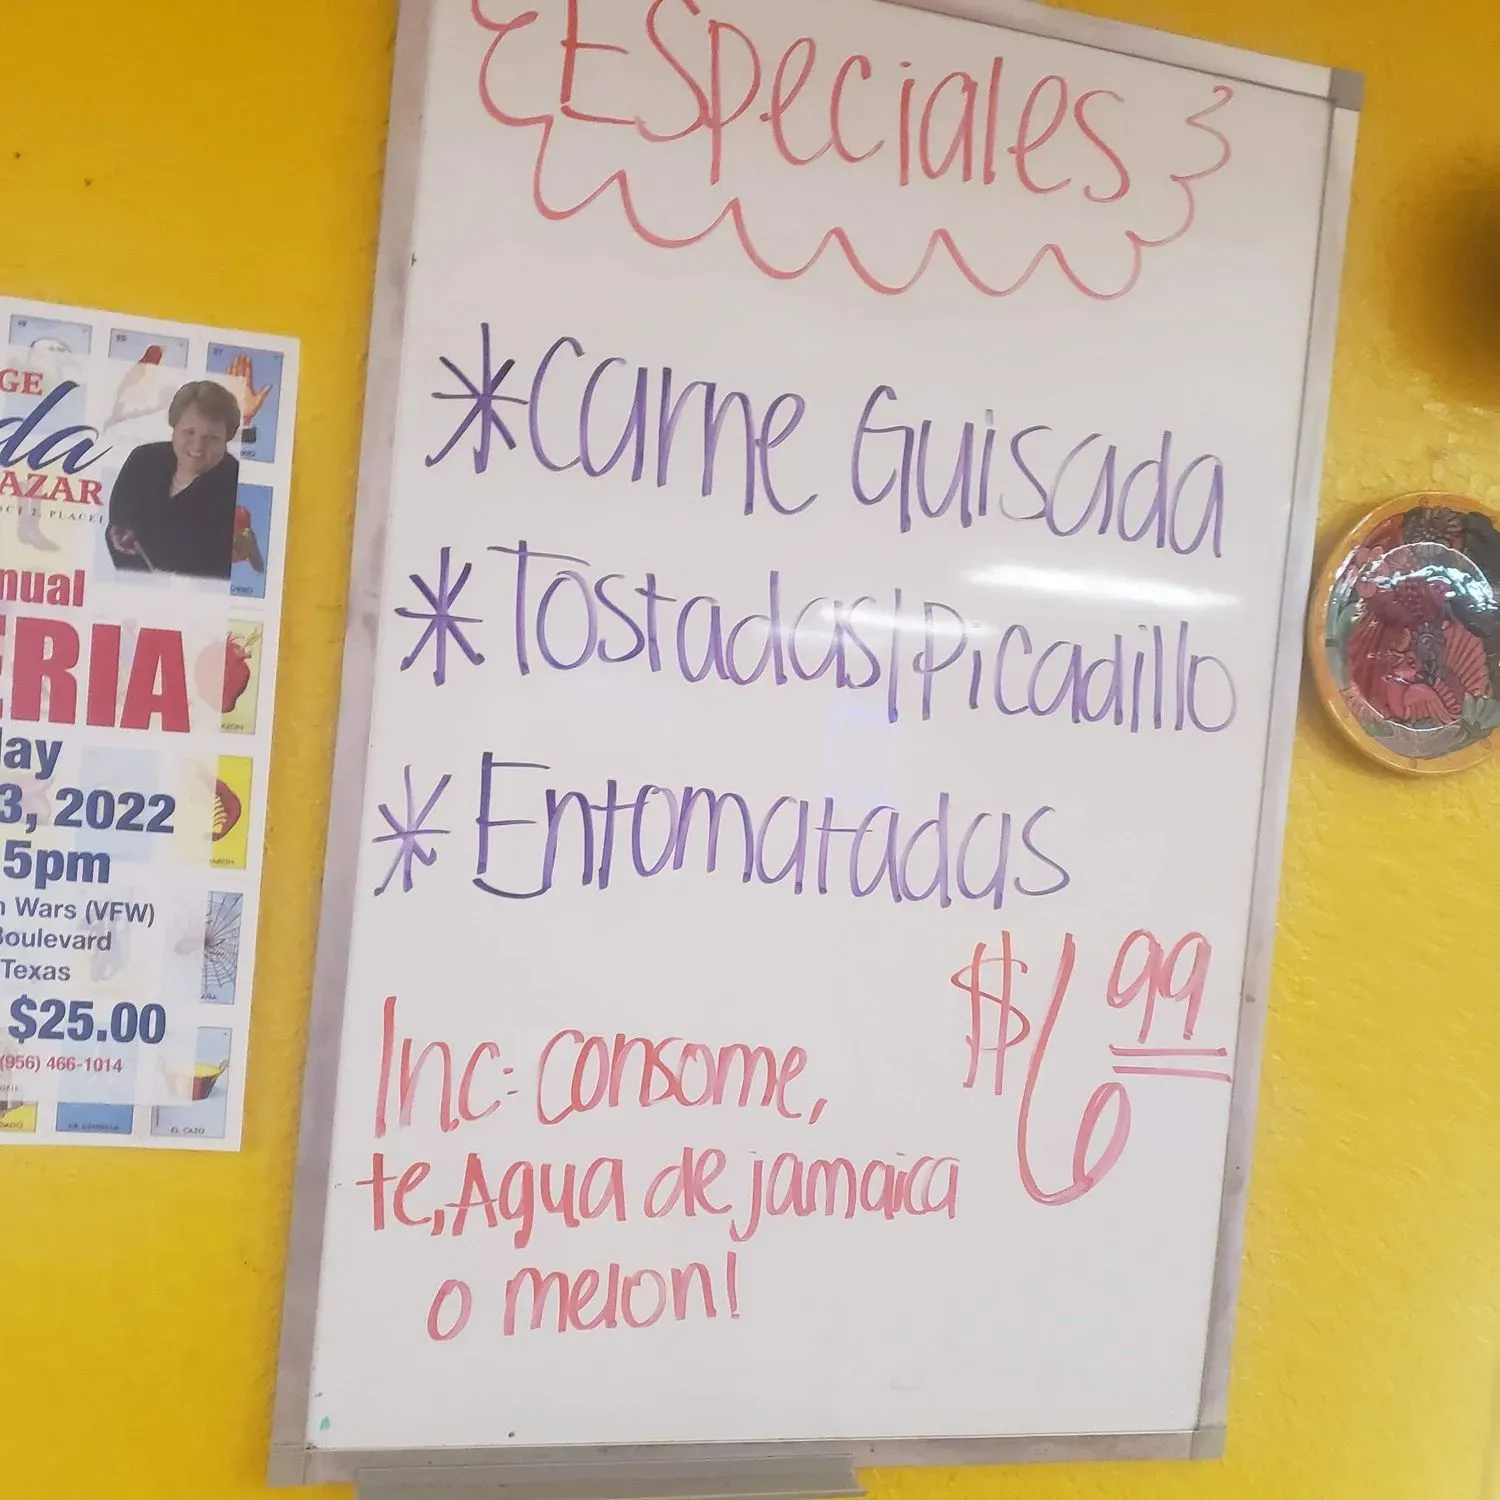 Especiales
*Carne Guisada
*Tostadas/Picadillo
*Entomatadas
$6.99
Inc: consome,
te, Agua de jamaica
o melon!
GE
da
AZAR
PCT 2, PLACE 1
nual
ERIA
ay
3, 2022
5pm
n Wars (VFW)
Boulevard
Texas
$25.00
(956) 466-1014
EL CAZO